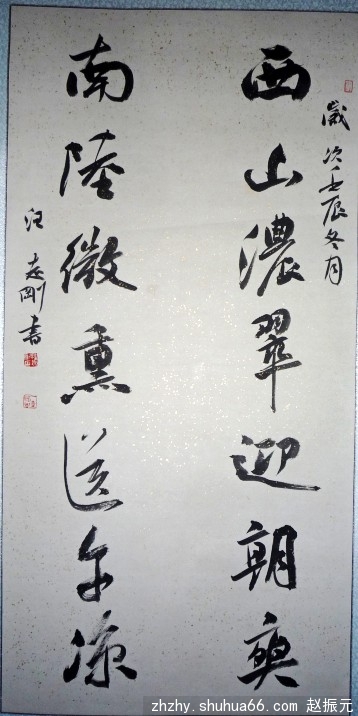 歲次壬辰冬月
西山濃翠迎朝爽
南陸微熏送午涼
汪志剛書
zhzhy.shuhua66.com 赵振元